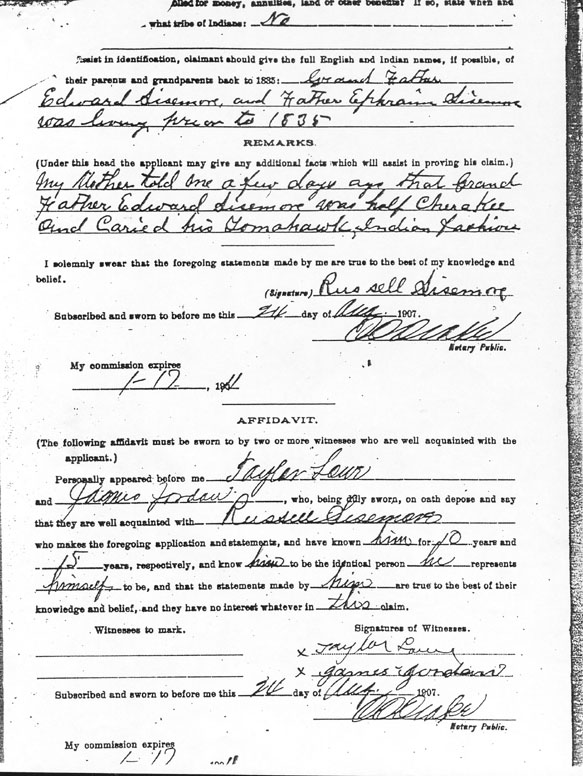 plied for money, annuities, land or other benefits? If so, state when and
what tribe of Indians: No
Assist in identification, claimant should give the full English and Indian names, if possible, of
their parents and grandparents back to 1835: Grand Father
Edward Sisemore, and Father Ephraim Sisemore
was living prior to 1835
REMARKS.
(Under this head the applicant may give any additional facts which will assist in proving his claim.)
My Mother told me a few days ago that Grand
Father Edward Sisemore was half Cherakee
and Caried his Tomahawk, Indian fashion
I solemnly swear that the foregoing statements made by me are true to the best of my knowledge and
belief.
(Signature) Russell Sisemore
Subscribed and sworn to before me this 24 day of Aug. 1907.
Notary Public.
My commission expires
1-17, 1911
AFFIDAVIT.
(The following affidavit must be sworn to by two or more witnesses who are well acquainted with the
applicant.)
Personally appeared before me Taylor
and James Jordan, who, being duly sworn, on oath depose and say
that they are well acquainted with Russell Sisemore
who makes the foregoing application and statements, and have known him for 10 years and
15 years, respectively, and know him to be the identical person he represents
himself to be, and that the statements made by him are true to the best of their
knowledge and belief, and they have no interest whatever in this claim.
Witnesses to mark.
Signatures of Witnesses.
x Taylor
x James Jordan
Subscribed and sworn to before me this 24 day of Aug. 1907.
Notary Public.
My commission expires
1-17